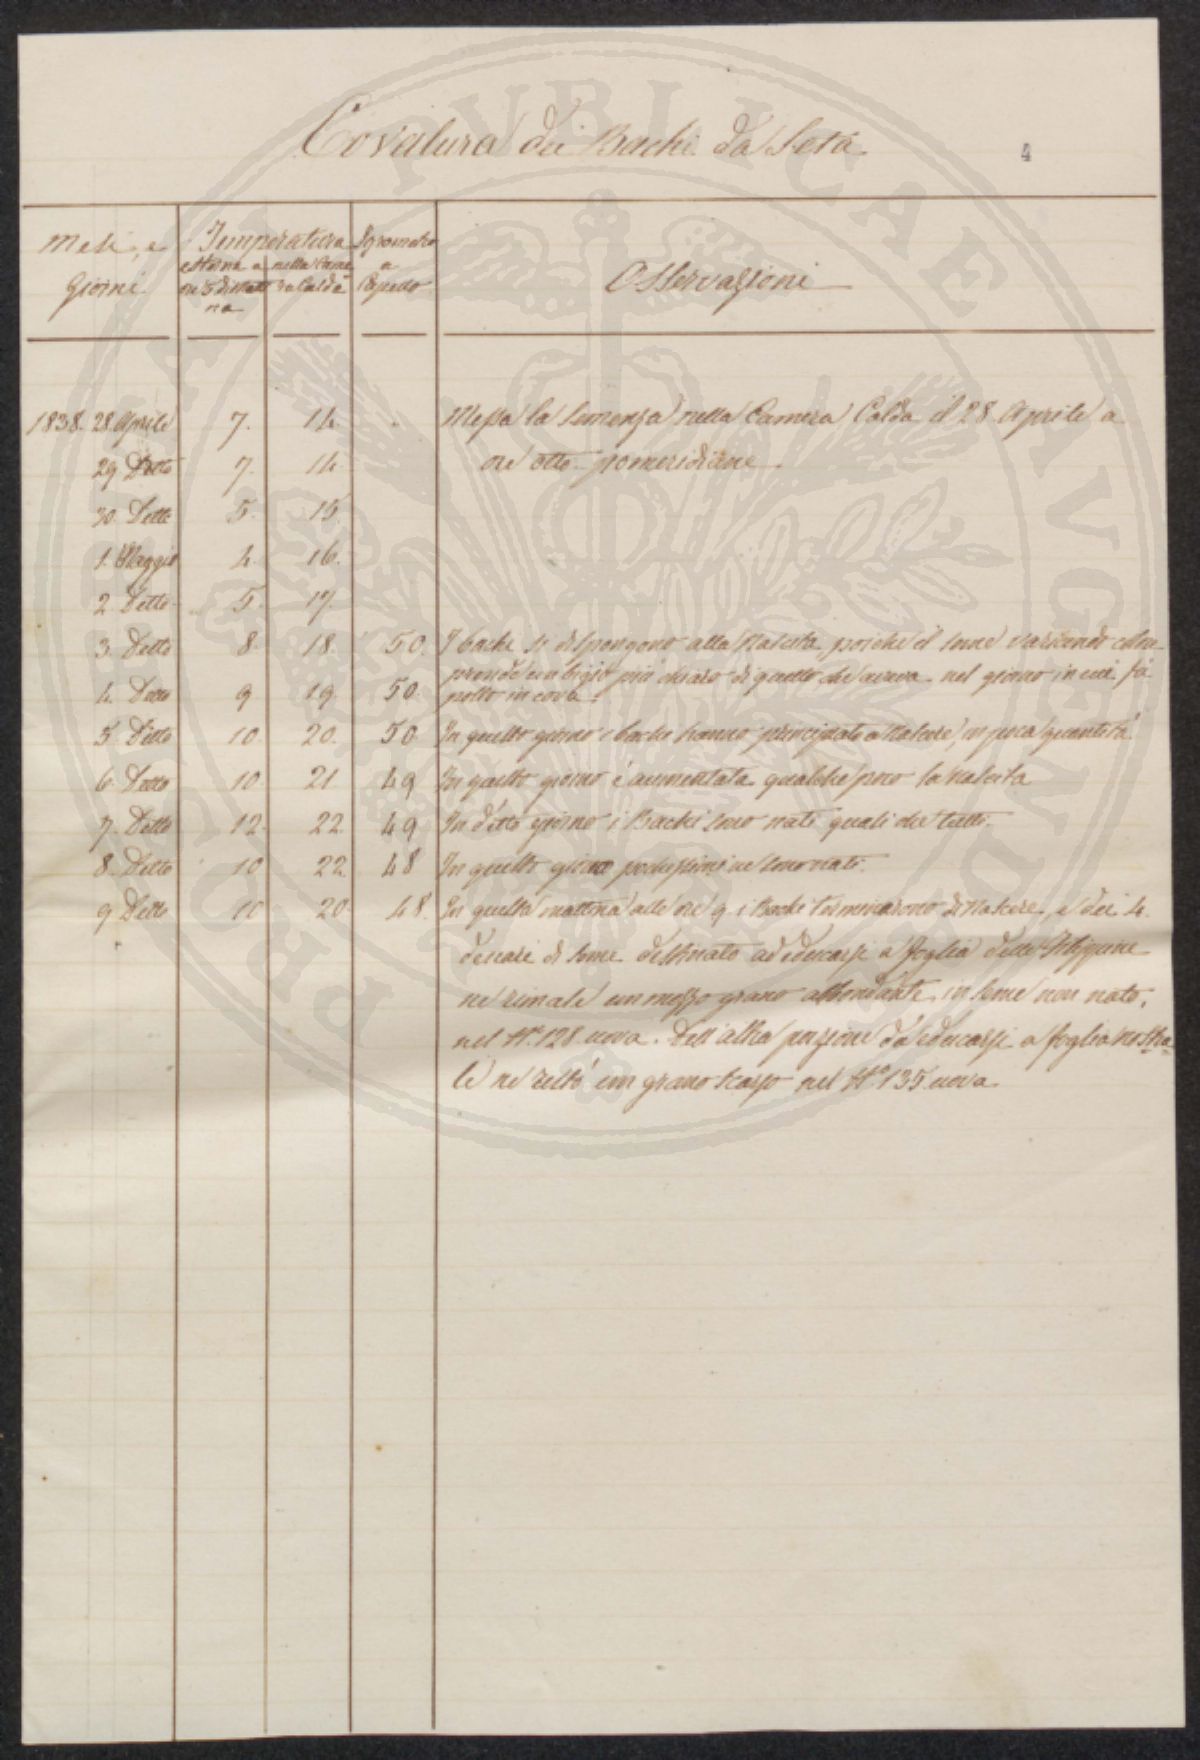 Covatura dei Bachi da Seta
4
Mesi, e Giorni
Temperatura
esterna a ore 5 di mattina
nella Camera Calda
Igrometro a Capello
Osservazioni
1838. 28 Aprile 7. 14. Messa la semenza nella Camera Calda il 28 Aprile a
29 Detto 7. 14 ore otto pomeridiane.
30. Detto 5. 15.
1. Maggio 4. 16.
2. Detto 5. 17
3. Detto 8. 18. 50. I bachi si dispongono alla nascita poichè il seme variando colore
prende un bigio più chiaro di quello che aveva nel giorno in cui fù
4. Detto 9 19. 50. posto in cova.
5. Detto 10. 20. 50 In questo giorno i bachi hanno principiato a Nascere, in poca quantità
6. Detto 10 21 49 In questo giorno è aumentata qualche poco la nascita
7. Detto 12. 22. 49 In detto giorno i Bachi sono nati quasi che tutti.
8. Detto 10 22. 48 In questo giorno pochissimi ne sono nati.
9 Detto 10 20 48. In questa mattina alle ore 9. i Bachi terminarono di Nascere, e dei 4.
denari di seme destinato ad educarsi a foglia delle Filippine
ne rimase un mezzo grano abbondante in seme non nato,
nel N.º 128 uova. Dell'altra porzione da educarsi a foglia nostra
le ne restò un grano scarso nel N.º 135 uova
PUBLICAE AUGENDAE